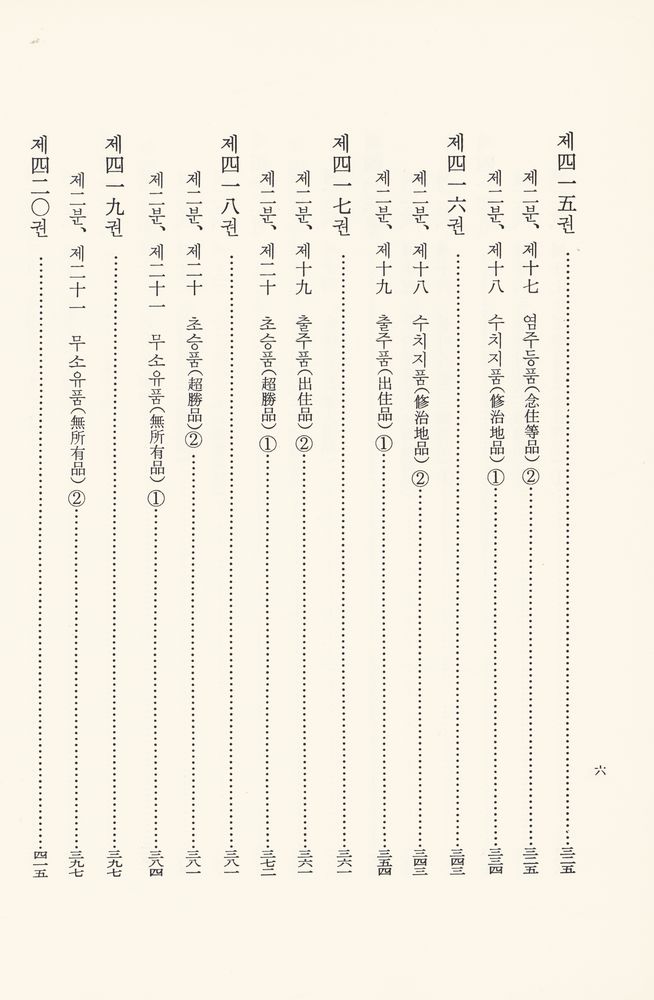 제四一五권 …… 三二五
제二분、 제十七 염주등품(念住等品)② …… 三二五
제二분、 제十八 수치지품(修治地品)① …… 三三四
제四一六권 …… 三四三
제二분、 제十八 수치지품(修治地品)② …… 三四三
제二분、 제十九 출주품(出住品)① …… 三五四
제四一七권 …… 三六一
제二분、 제十九 출주품(出住品)② …… 三六一
제二분、 제二十 초승품(超勝品)① …… 三七二
제四一八권 …… 三八一
제二분、 제二十 초승품(超勝品)② …… 三八一
제二분、 제二十一 무소유품(無所有品)① …… 三八四
제四一九권 …… 三九七
제二분、 제二十一 무소유품(無所有品)② …… 三九七
제四二〇권 …… 四一五
六